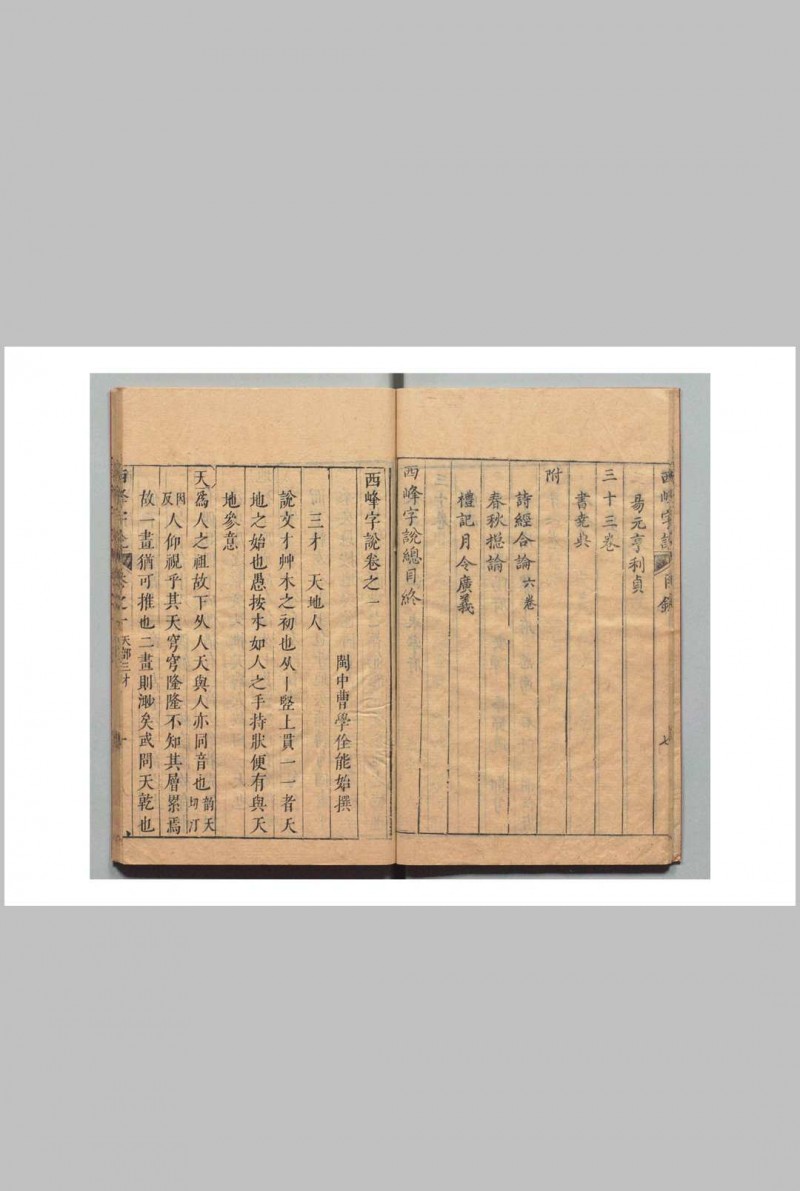 西峰字說 目錄 七
易元亨利貞
三十三卷
書堯典
附
詩經合論六卷
春秋摡論
禮記月令廣義
西峰字說總目終
西峰字說卷之一
閩中曹學佺能始撰
三才 天地人
說文才艸木之初也从丨竪上貫一一者天
地之始也愚按才如人之手持狀便有與天
地參意
天爲人之祖故下从人天與人亦同音也韵天切汀
因反人仰視乎其天穹穹隆隆不知其層累焉
故一畫猶可推也二畫則渺矣或問天乾也
西峰字說 卷之一 天部三才 一